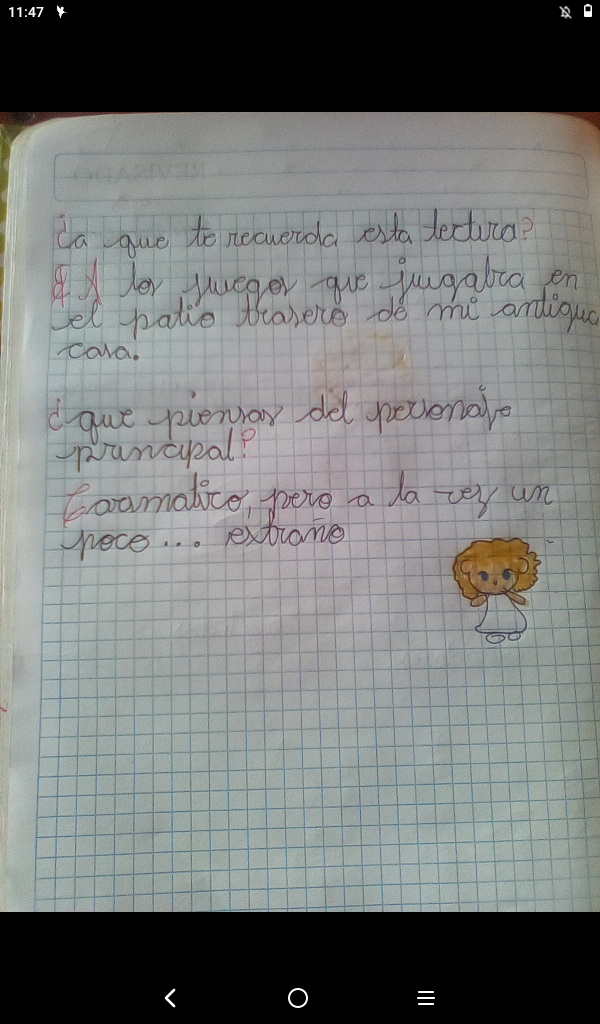 11:47
¿a que te recuerda esta lectura?
A los juegos que jugaba en
el patio trasero de mi antigua
casa.
¿que piensas del personaje
principal?
pero a la vez un
poco... extraño